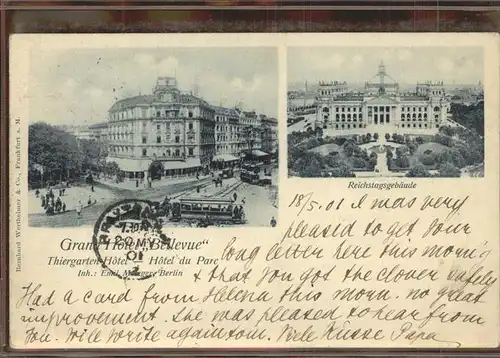 Bernhard Wertheimer & Co., Frankfurt a. M.
Reichstagsgebäude
Grand Hôtel Bellevue"
Thiergarten-Hôtel — Hôtel du Parc
Inh.: Emil Berlin
18/5. 01 I was very
pleasid to get your
long letter here this morn'g
& that you got the clover safely
Had a card from Helena this morn. no great
improvement. She was pleased to hear from
you. Will write again tom. Viele Küsse Papa